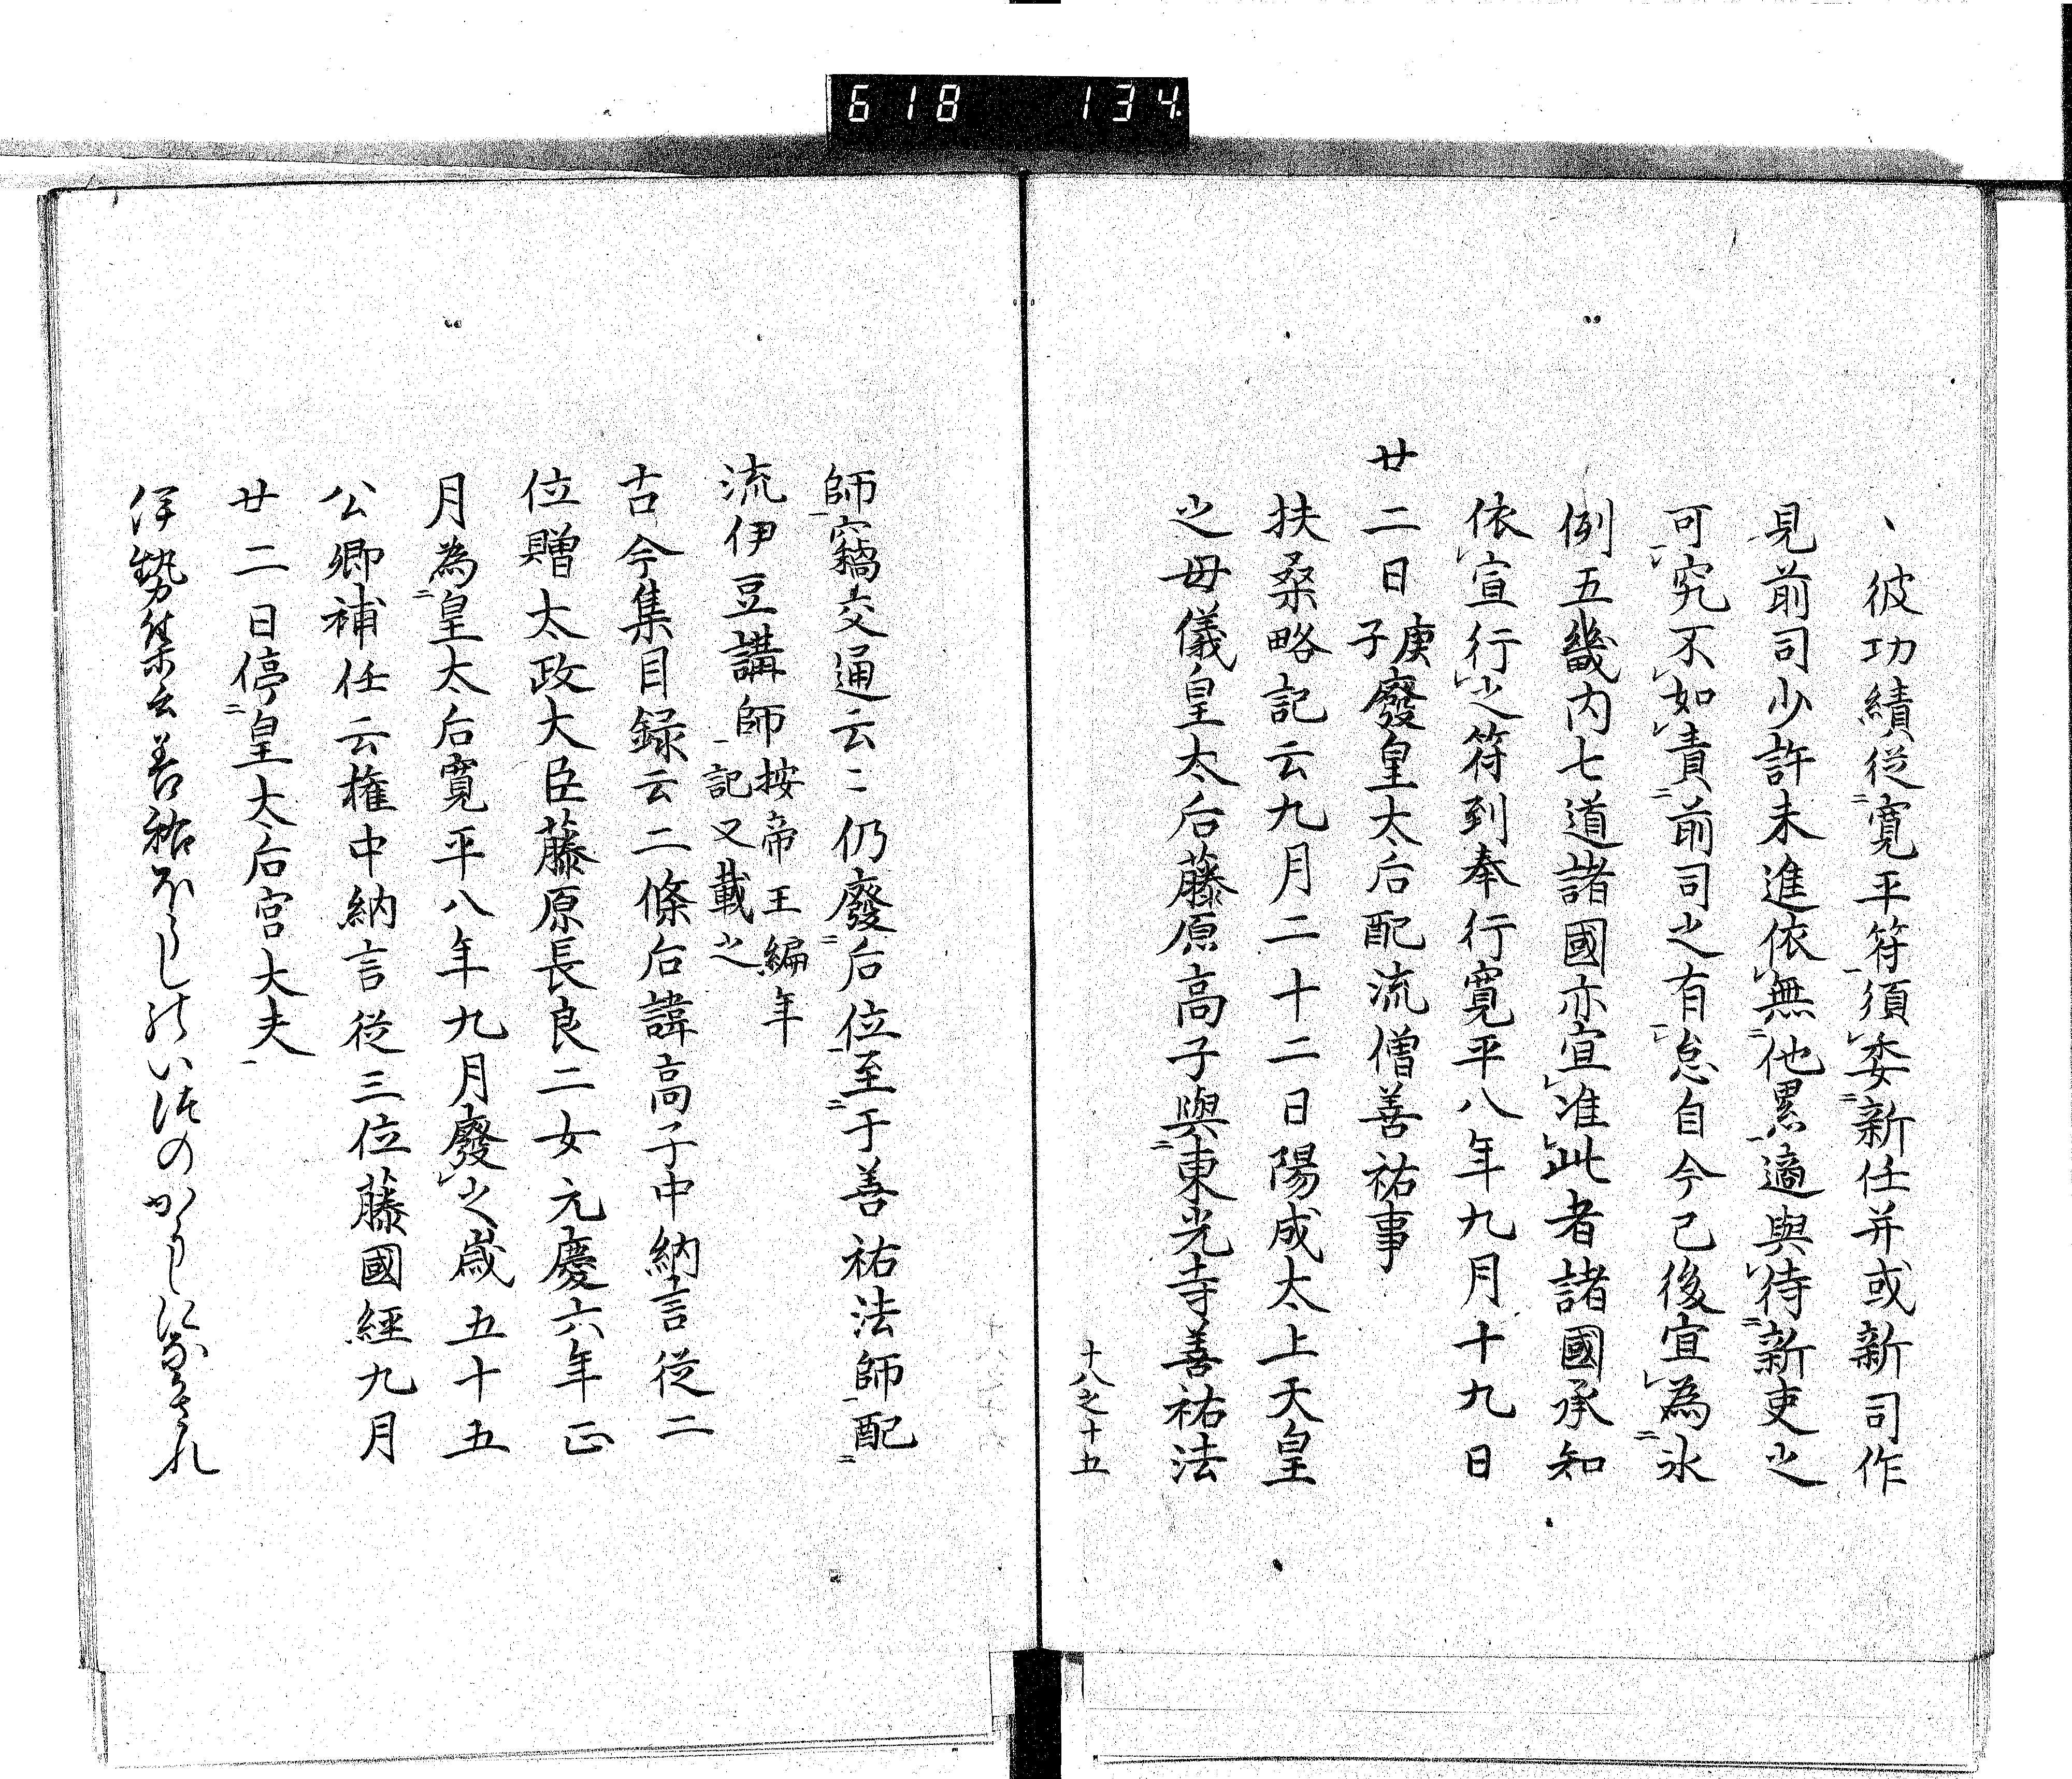 618 134
、彼功績従寛平符須委新任并或新司作
見前司少許未進依無他累適與待新吏之
可究不如責前司之有怠自今已後宜為永
例五畿内七道諸國亦宜准此者諸國承知
依宣行之符到奉行寛平八年九月十九日
廿二日庚子廢皇太后配流僧善祐事
扶桑略記云九月二十二日陽成太上天皇
之母儀皇太后藤原高子與東光寺善祐法
十八之十五
師竊交通云〻仍廢后位至于善祐法師配
流伊豆講師按帝王編年記又載之
古今集目録云二條后諱高子中納言従二
位贈太政大臣藤原長良二女元慶六年正
月為皇太后寛平八年九月廢之歳五十五
公卿補任云権中納言従三位藤國經九月
廿二日停皇太后宮大夫
伊勢集云善祐ほうしのいつのかうしになされ